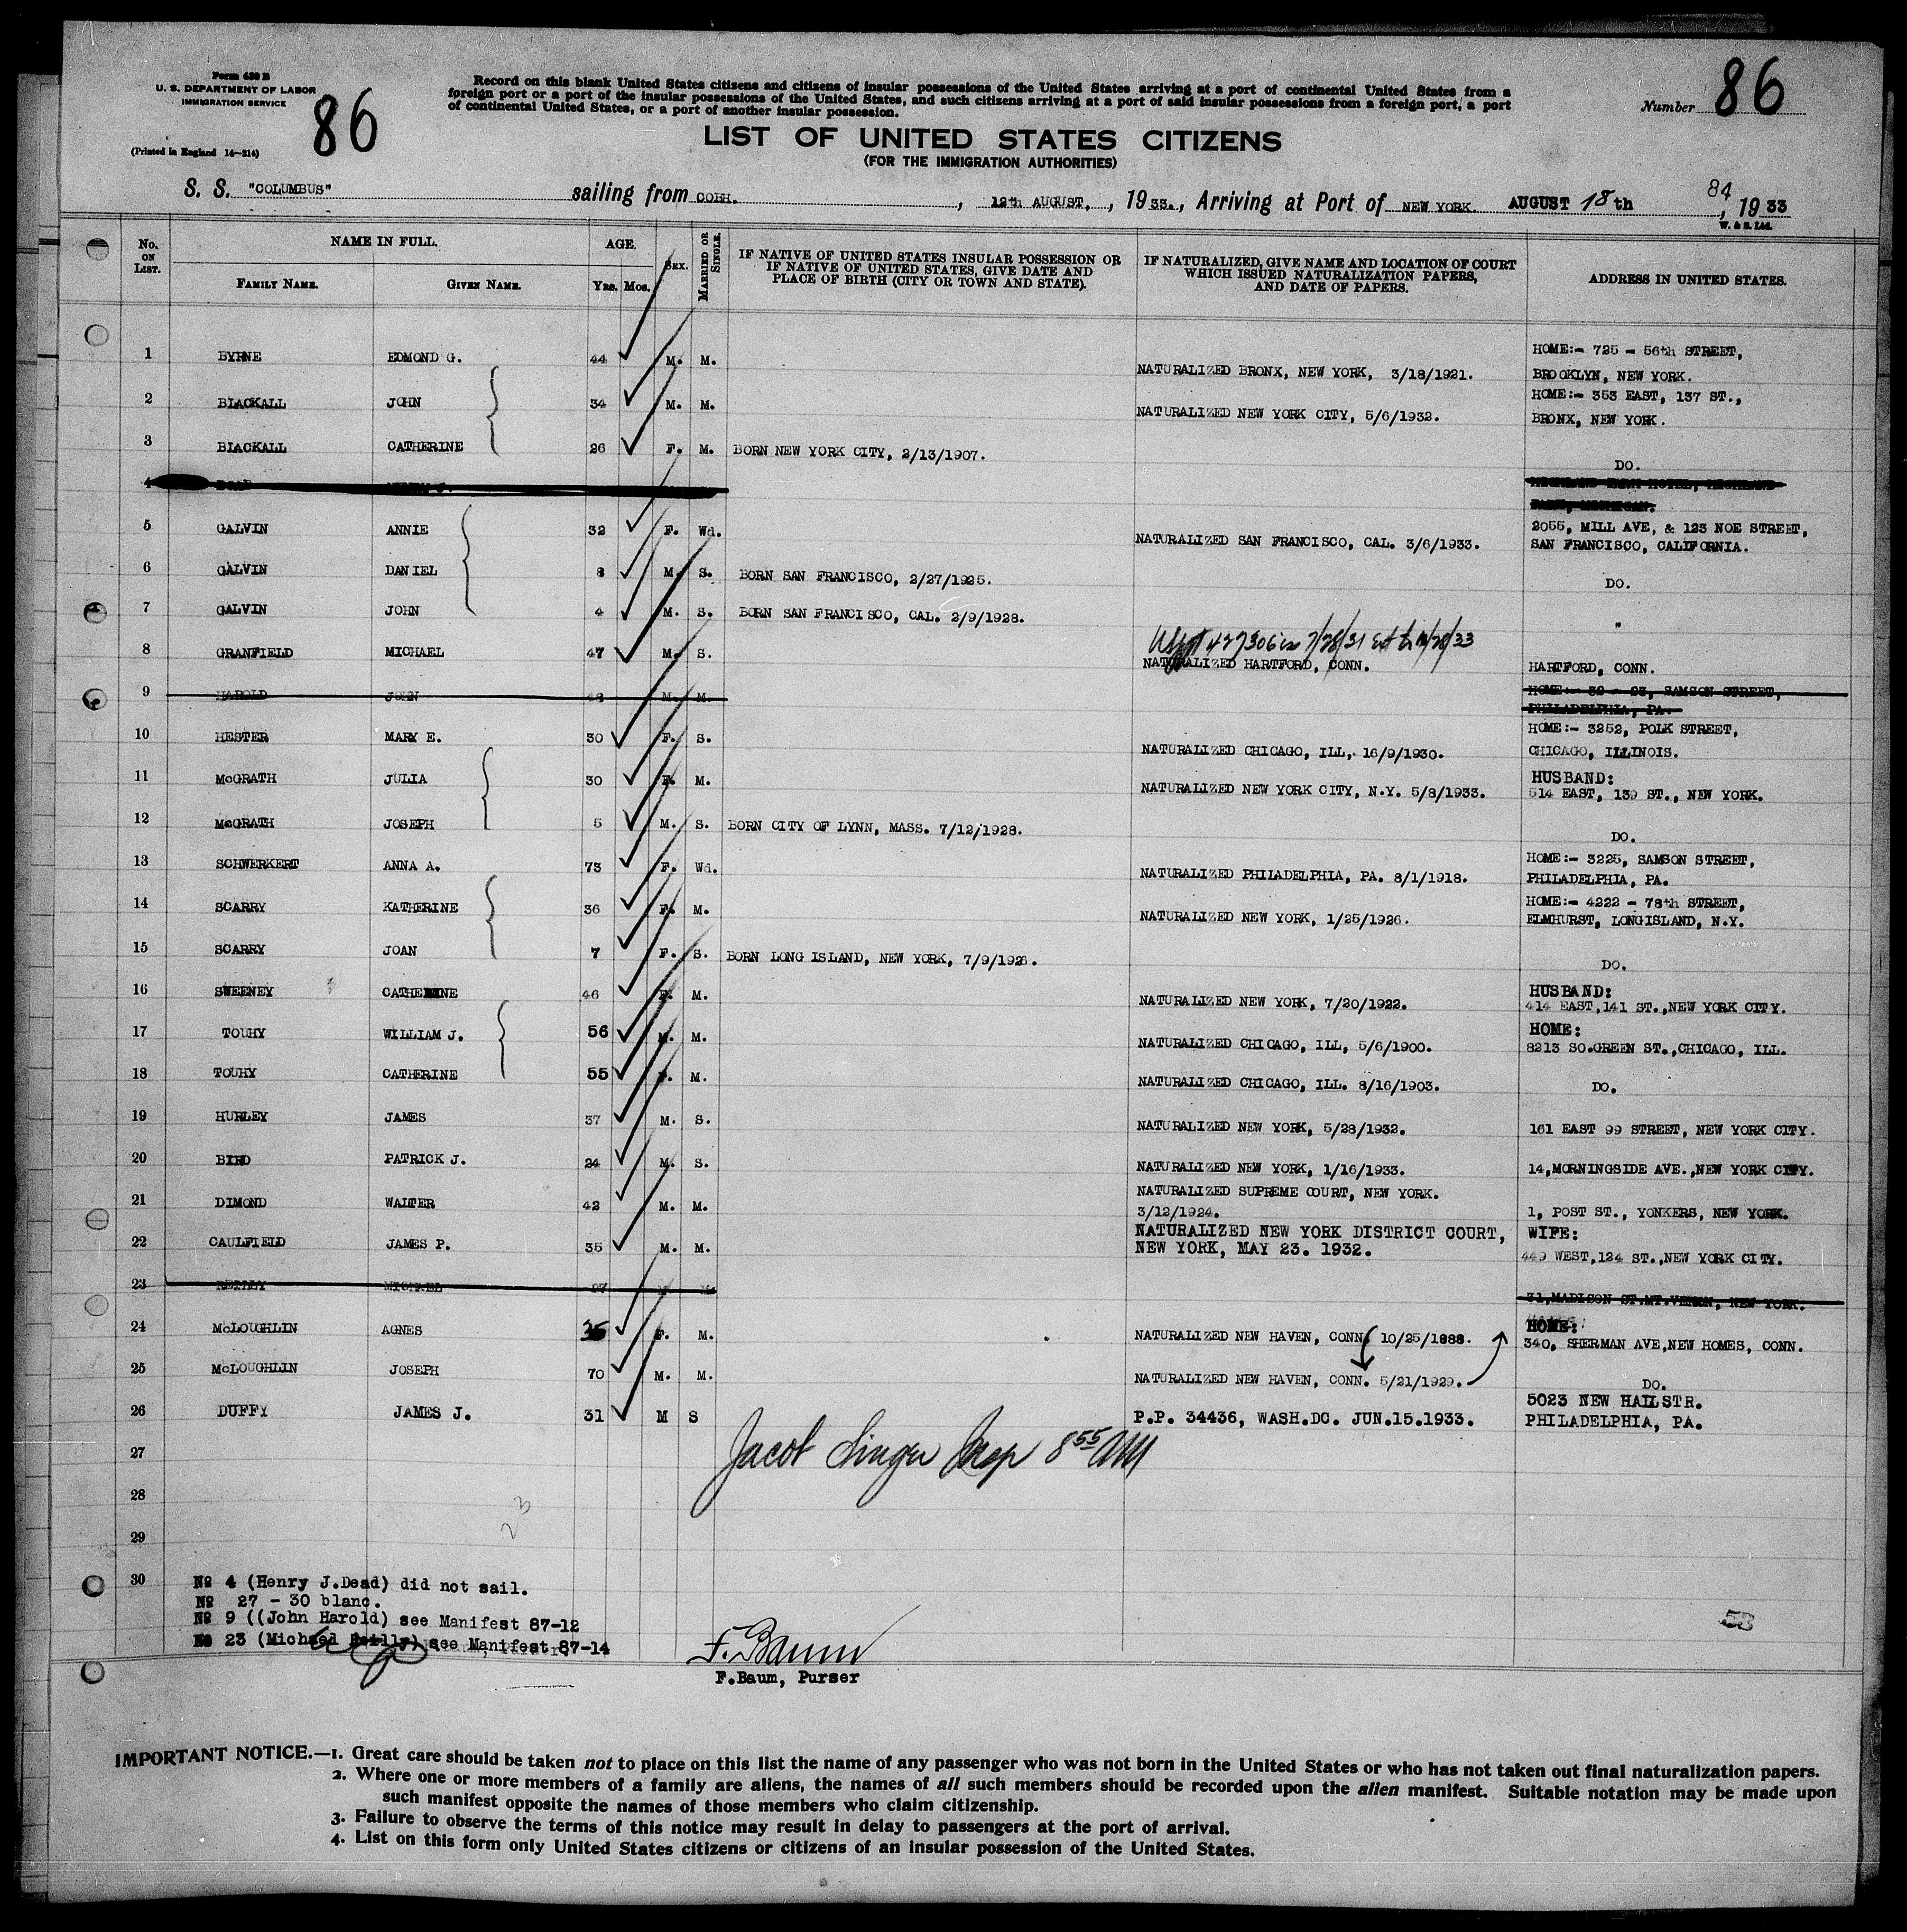 Form 630 B
U. S. DEPARTMENT OF LABOR
IMMIGRATION SERVICE
86
(Printed in England 14—214)
Record on this blank United States citizens and citizens of insular possessions of the United States arriving at a port of continental United States from a
foreign port or a port of the insular possessions of the United States, and such citizens arriving at a port of said insular possessions from a foreign port, a port
of continental United States, or a port of another insular possession.
Number 86
LIST OF UNITED STATES CITIZENS
(FOR THE IMMIGRATION AUTHORITIES)
84
S. S. "COLUMBUS" sailing from COBH. , 12th AUGUST, , 1933., Arriving at Port of NEW YORK. AUGUST 18th , 1933
W. & S. Ltd.
No. ON LIST. NAME IN FULL. FAMILY NAME. GIVEN NAME. AGE. Yrs. Mos. SEX. MARRIED OR SINGLE.
IF NATIVE OF UNITED STATES INSULAR POSSESSION OR
IF NATIVE OF UNITED STATES, GIVE DATE AND
PLACE OF BIRTH (CITY OR TOWN AND STATE).
IF NATURALIZED, GIVE NAME AND LOCATION OF COURT
WHICH ISSUED NATURALIZATION PAPERS,
AND DATE OF PAPERS.
ADDRESS IN UNITED STATES.
1 BYRNE EDMOND G. 44 M. M. NATURALIZED BRONX, NEW YORK, 3/18/1921. HOME:- 725 - 56th STREET,
BROOKLYN, NEW YORK.
2 BLACKALL JOHN 34 M. M. NATURALIZED NEW YORK CITY, 5/6/1932. HOME:- 353 EAST, 137 ST.,
BRONX, NEW YORK.
3 BLACKALL CATHERINE 26 F. M. BORN NEW YORK CITY, 2/13/1907. DO.
4 HENRY J. HIGHLAND PARK HOTEL, HIGHLAND
PARK, MICHIGAN.
5 GALVIN ANNIE 32 F. Wd. NATURALIZED SAN FRANCISCO, CAL. 3/6/1933. 2055, MILL AVE, & 123 NOE STREET,
SAN FRANCISCO, CALIFORNIA.
6 GALVIN DANIEL 8 M. S. BORN SAN FRANCISCO, 2/27/1925. DO.
7 GALVIN JOHN 4 M. S. BORN SAN FRANCISCO, CAL. 2/9/1928. "
427306 7/28/31
8 GRANFIELD MICHAEL 47 M. S. NATURALIZED HARTFORD, CONN. HARTFORD, CONN.
9 HAROLD JOHN M. M. HOME:- 32 - 23, SAMSON STREET,
PHILADELPHIA, PA.
10 HESTER MARY E. 30 F. S. NATURALIZED CHICAGO, ILL, 16/9/1930. HOME:- 3252, POLK STREET,
CHICAGO, ILLINOIS.
11 McGRATH JULIA 30 F. M. NATURALIZED NEW YORK CITY, N.Y. 5/8/1933. HUSBAND:
514 EAST, 139 ST., NEW YORK.
12 McGRATH JOSEPH 5 M. S. BORN CITY OF LYNN, MASS. 7/12/1928. DO.
13 SCHWERKERT ANNA A. 73 F. Wd. NATURALIZED PHILADELPHIA, PA. 8/1/1918. HOME:- 3225, SAMSON STREET,
PHILADELPHIA, PA.
14 SCARRY KATHERINE 36 F. M. NATURALIZED NEW YORK, 1/25/1926. HOME:- 4222 - 78th STREET,
ELMHURST, LONGISLAND, N.Y.
15 SCARRY JOAN 7 F. S. BORN LONG ISLAND, NEW YORK, 7/9/1926. DO.
16 SWEENEY CATHERINE 46 F. M. NATURALIZED NEW YORK, 7/20/1922. HUSBAND:
414 EAST,141 ST.,NEW YORK CITY.
17 TOUHY WILLIAM J. 56 M. M. NATURALIZED CHICAGO, ILL, 5/6/1900. HOME:
8213 SO.GREEN ST.,CHICAGO, ILL.
18 TOUHY CATHERINE 55 F. M. NATURALIZED CHICAGO, ILL. 8/16/1903. DO.
19 HURLEY JAMES 37 M. S. NATURALIZED NEW YORK, 5/28/1932. 161 EAST 99 STREET, NEW YORK CITY.
20 BIRD PATRICK J. 24 M. S. NATURALIZED NEW YORK, 1/16/1933. 14,MORNINGSIDE AVE.,NEW YORK CITY.
21 DIMOND WALTER 42 M. M. NATURALIZED SUPREME COURT, NEW YORK.
3/12/1924. 1, POST ST., YONKERS, NEW YORK.
22 CAULFIELD JAMES P. 35 M. M. NATURALIZED NEW YORK DISTRICT COURT,
NEW YORK, MAY 23. 1932. WIFE:
449 WEST,124 ST.,NEW YORK CITY.
23 REILLY MICHAEL M. 31,MADISON ST.MT.VERNON, NEW YORK.
24 McLOUGHLIN AGNES 35 F. M. NATURALIZED NEW HAVEN, CONN. 10/25/1888. HOME:
340, SHERMAN AVE,NEW HOMES, CONN.
25 McLOUGHLIN JOSEPH 70 M. M. NATURALIZED NEW HAVEN, CONN. 5/21/1929. DO.
26 DUFFY JAMES J. 31 M S P.P. 34436, WASH.DC. JUN.15.1933. 5023 NEW HALLSTR.
PHILADELPHIA, PA.
27
Jacob Singer Insp 8 55 AM
28
23
29
30
No 4 (Henry J.Dead) did not sail.
No 27 - 30 blanc.
No 9 ((John Harold) see Manifest 87-12
No 23 (Michael Reilly) see Manifest 87-14
53
F. Baum
F.Baum, Purser
IMPORTANT NOTICE.—1. Great care should be taken not to place on this list the name of any passenger who was not born in the United States or who has not taken out final naturalization papers.
2. Where one or more members of a family are aliens, the names of all such members should be recorded upon the alien manifest. Suitable notation may be made upon
such manifest opposite the names of those members who claim citizenship.
3. Failure to observe the terms of this notice may result in delay to passengers at the port of arrival.
4. List on this form only United States citizens or citizens of an insular possession of the United States.